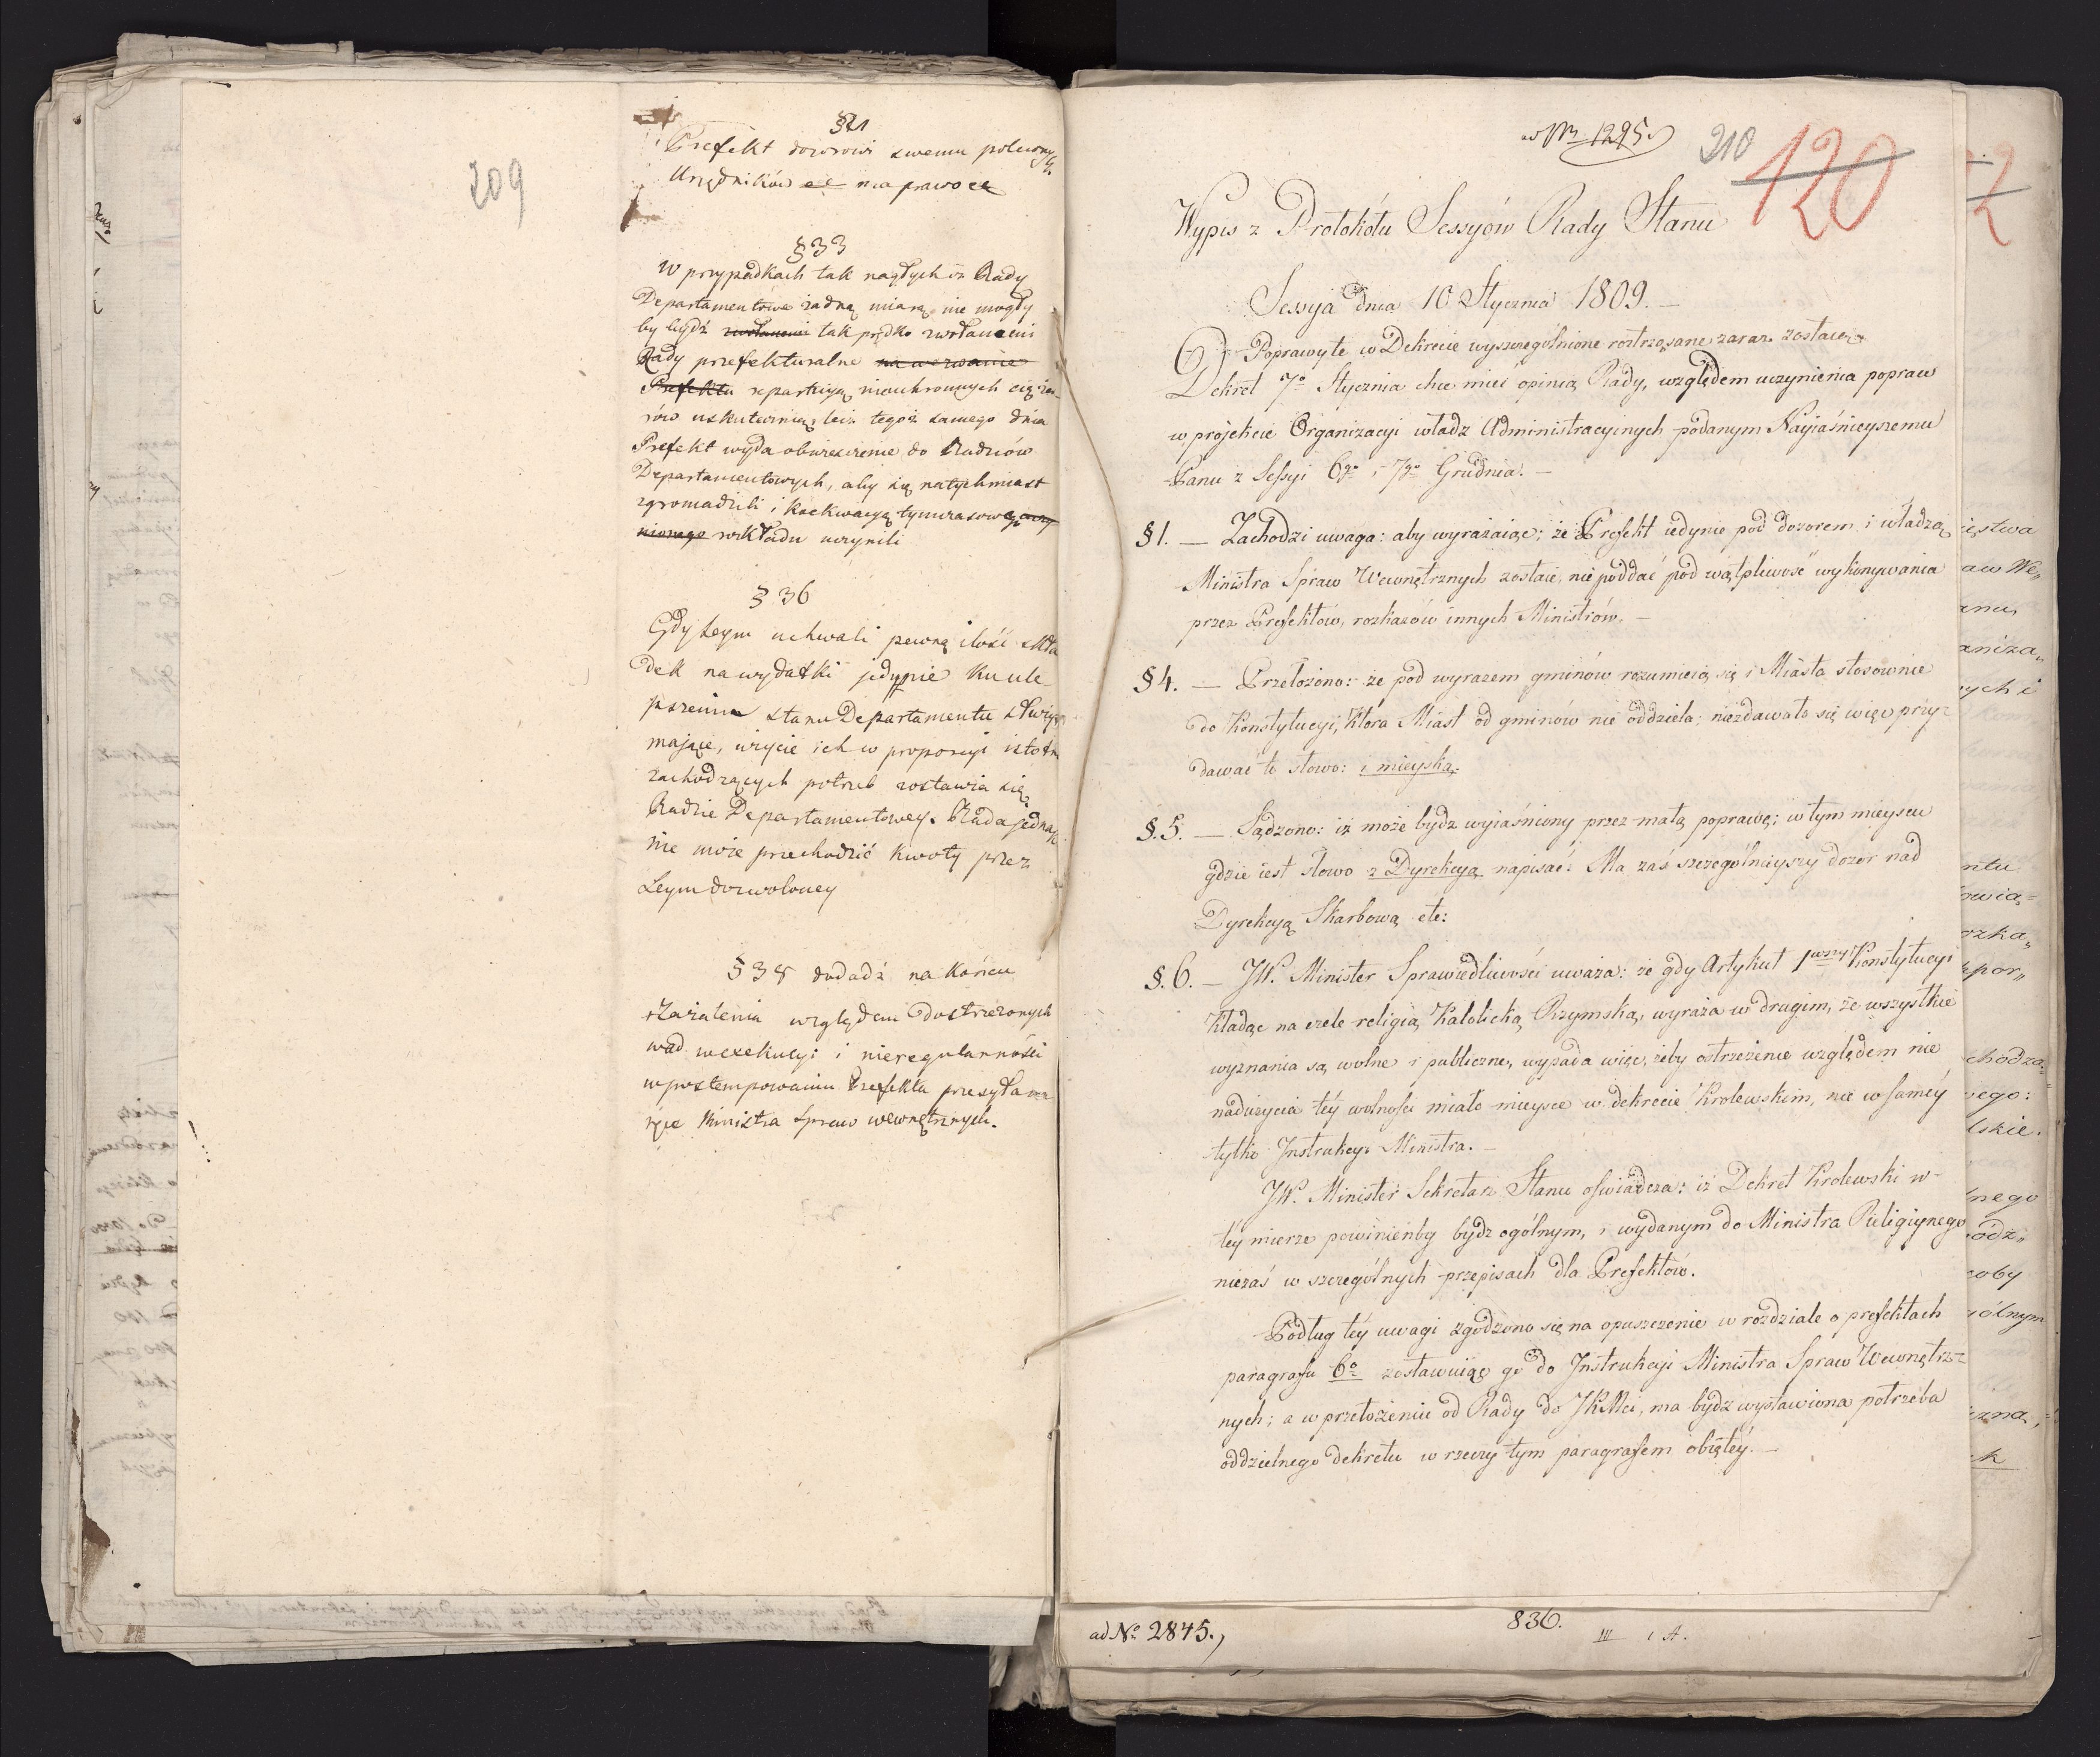 209
§ 21
Prefekt dozorowi swemu poleconych
Urzędników ma prawo
§ 33
W przypadkach tak nagłych iż Rady
Departamentowe żadną miarą nie mogły
by bydź zwołanemi tak prędko zwołanemi
Rady prefekturalne na wezwanie
Prefekta repartycyą nieuchronnych cięża-
rów uskutecznią, lecz tegoż samego dnia
Prefekt wyda obwieszczenie do Radców
Departamentowych, aby się natychmiast
zgromadzili i koekwacyą tymczasowego
rozkładu uczynili
§ 36
Gdy Seym uchwali pewną ilość skła
dek na wydatki jedynie ku ule
pszeniu stanu Departamentu
mające, użycie ich w proporcyi istotn
zachodzących potrzeb zostawia się
Radzie Departamentowey. Rada jednak
nie może przechodzić kwoty przez
Seym dozwoloney
§ 38 dodadź na końcu
Zażalenia względem dostrzeżonych
wad w exekucyi i nieregularności
w postempowaniu Prefekta przesyła na
ręce Ministra Spraw wewnętrznych.
ad Nr 1295.
210
120
Wypis z Protokółu Sessyów Rady Stanu
Sessyja dnia 10 Stycznia 1809. —
Poprawy te w Dekrecie wyszczególnione roztrząsane zaraz zostały
Dekret 7o Stycznia chce mieć opinią Rady, względem uczynienia popraw
w projekcie Organizacyi władz Administracyinych podanym Nayiaśnieyszemu
Panu z Sessyi 6go i 7go Grudnia. —
§ 1. — Zachodzi uwaga: aby wyrażaiąc; że Prefekt iedynie pod dozorem i władzą
Ministra Spraw Wewnętrznych zostaie, nie poddać pod wątpliwość wykonywania
przez Prefektów, rozkazów innych Ministrów. —
§ 4. — Przełożono: że pod wyrazem gminów rozumieią się i Miasta stosownie
do Konstytucyi, ktora Miast od gminów nie oddziela; niezdawało się więc przy-
dawać to słowo: i mieyska.
§. 5. — Sądzono: iż może bydz wyiaśniony przez małą poprawę; w tym mieyscu
gdzie iest słowo z Dyrekcyą napisać: Ma zaś szczególnieyszy dozór nad
Dyrekcyą Skarbową etc:
§. 6. — JW. Minister Sprawiedliwości uważa: że gdy Artykuł 1wszy Konstytucyi
kładąc na czele religią Katolicką Rzymską, wyraża w drugim, że wszystkie
wyznania są wolne i publiczne, wypada więc, żeby ostrzeżenie względem nie
nadużycia téy wolności miało mieysce w dekrecie Krolewskim, nie w saméy
tylko Jnstrukcyi Ministra. —
JW. Minister Sekretarz Stanu oświadcza: iż Dekret Krolewski w-
téy mierze powinienby bydz ogólnym, i wydanym do Ministra Religiynego
niezaś w szczególnych przepisach dla Prefektów.
Podług téy uwagi zgodzono się na opuszczenie w rozdziale o prefektach
paragrafu 6o zostawuiąc go do Jnstrukcyi Ministra Spraw Wewnętrz-
nych; a w przełożeniu od Rady do JKMci, ma bydz wystawiona potrzeba
oddzielnego dekretu w rzeczy tym paragrafem obiętéy. —
ad No 2845.
836.
III 1 A.